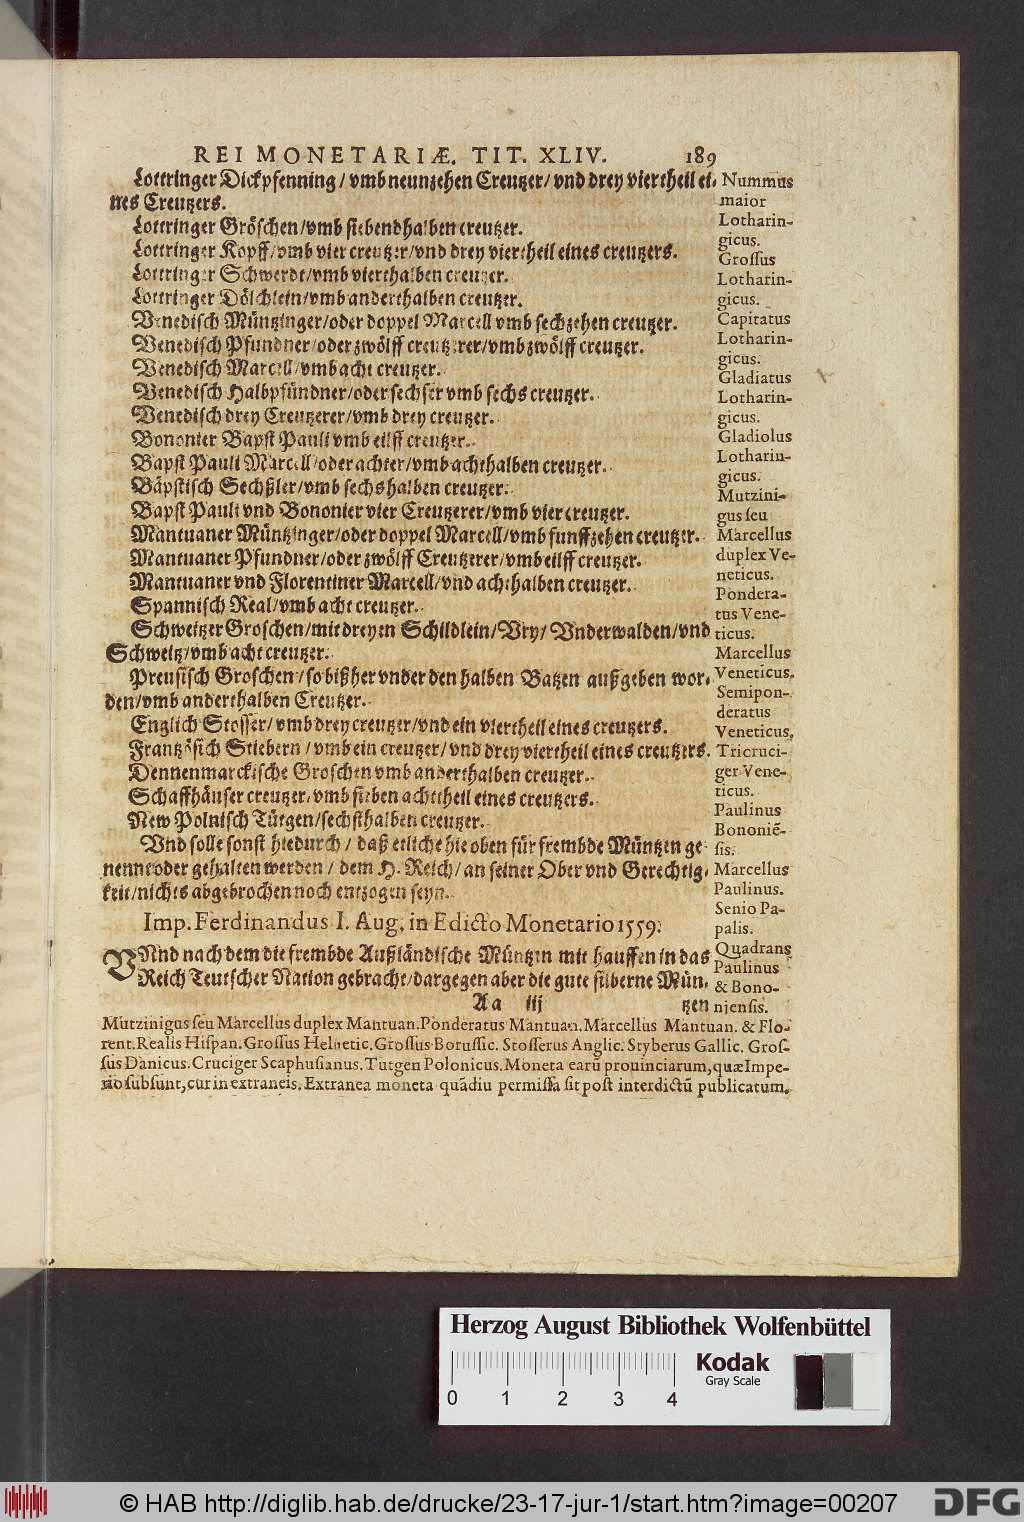 REI MONETARIÆ. TIT. XLIV. 189
Lottringer Dickpfenning / vmb neunzehen Creutzer / vnd drey viertheil ei-
nes Creutzers.
Lottringer Gröschen / vmb siebendhalben creutzer.
Lottringer Kopff / vmb vier creutzer / vnd drey viertheil eines creutzers.
Lottringer Schwerdt / vmb vierthalben creutzer.
Lottringer Dölchlein / vmb anderthalben creutzer.
Venedisch Müntzinger / oder doppel Marcell vmb sechzehen creutzer.
Venedisch Pfundner / oder zwölff creutzerer / vmb zwölff creutzer.
Venedisch Marcell / vmb acht creutzer.
Venedisch Halbpfündner / oder sechser vmb sechs creutzer.
Venedisch drey Creutzerer / vmb drey creutzer.
Bononier Bapst Pauli vmb eilff creutzer.
Bapst Pauli Marcell / oder achter / vmb achthalben creutzer.
Bäpstisch Sechßler / vmb sechshalben creutzer.
Bapst Pauli vnd Bononier vier Creutzerer / vmb vier creutzer.
Mantuaner Müntzinger / oder doppel Marcell / vmb funffzehen creutzer.
Mantuaner Pfundner / oder zwölff Creutzerer / vmb eilff creutzer.
Mantuaner vnd Florentiner Marcell / vnd achthalben creutzer.
Spannisch Real / vmb acht creutzer.
Schweitzer Groschen / mit dreyen Schildlein / Vry / Vnderwalden / vnd
Schweitz / vmb acht creutzer.
Preusisch Groschen / so bißher vnder den halben Batzen außgeben wor-
den / vmb anderthalben Creutzer.
Englich Stosser / vmb drey creutzer / vnd ein viertheil eines creutzers.
Frantzösich Stiebern / vmb ein creutzer / vnd drey viertheil eines creutzers.
Dennenmarckische Groschen vmb anderthalben creutzer.
Schaffhäuser creutzer / vmb sieben achttheil eines creutzers.
New Polnisch Tütgen / sechsthalben creutzer.
Vnd solle sonst hiedurch / daß etliche hie oben für frembde Müntzen ge-
nennt oder gehalten werden / dem H. Reich / an seiner Ober vnd Gerechtig-
keit / nichts abgebrochen noch entzogen seyn.
Imp. Ferdinandus I. Aug. in Edicto Monetario 1559.
VNnd nach dem die frembde Außländische Müntzen mit hauffen in das
Reich Teutscher Nation gebracht / dargegen aber die gute silberne Mün-
Aa iij tzen
Nummus
maior
Lotharin-
gicus.
Grossus
Lotharin-
gicus.
Capitatus
Lotharin-
gicus.
Gladiatus
Lotharin-
gicus.
Gladiolus
Lotharin-
gicus.
Mutzini-
gus seu
Marcellus
duplex Ve-
neticus.
Pondera-
tus Vene-
ticus.
Marcellus
Veneticus.
Semipon-
deratus
Veneticus,
Tricruci-
ger Vene-
ticus.
Paulinus
Bononiẽ-
sis.
Marcellus
Paulinus.
Senio Pa-
palis.
Quadrans
Paulinus
& Bono-
njensis.
Mutzinigus seu Marcellus duplex Mantuan. Ponderatus Mantuan. Marcellus Mantuan. & Flo-
rent. Realis Hispan. Grossus Heluetic. Grossus Borussic. Stosserus Anglic. Styberus Gallic. Gros-
sus Danicus. Cruciger Scaphusianus. Tutgen Polonicus. Moneta earũ prouinciarum, quæ Impe-
rio subsunt, cur in extraneis. Extranea moneta quãdiu permissa sit post interdictũ publicatum.
Herzog August Bibliothek Wolfenbüttel
0 1 2 3 4
Kodak
Gray Scale
© HAB http://diglib.hab.de/drucke/23-17-jur-1/start.htm?image=00207
DFG